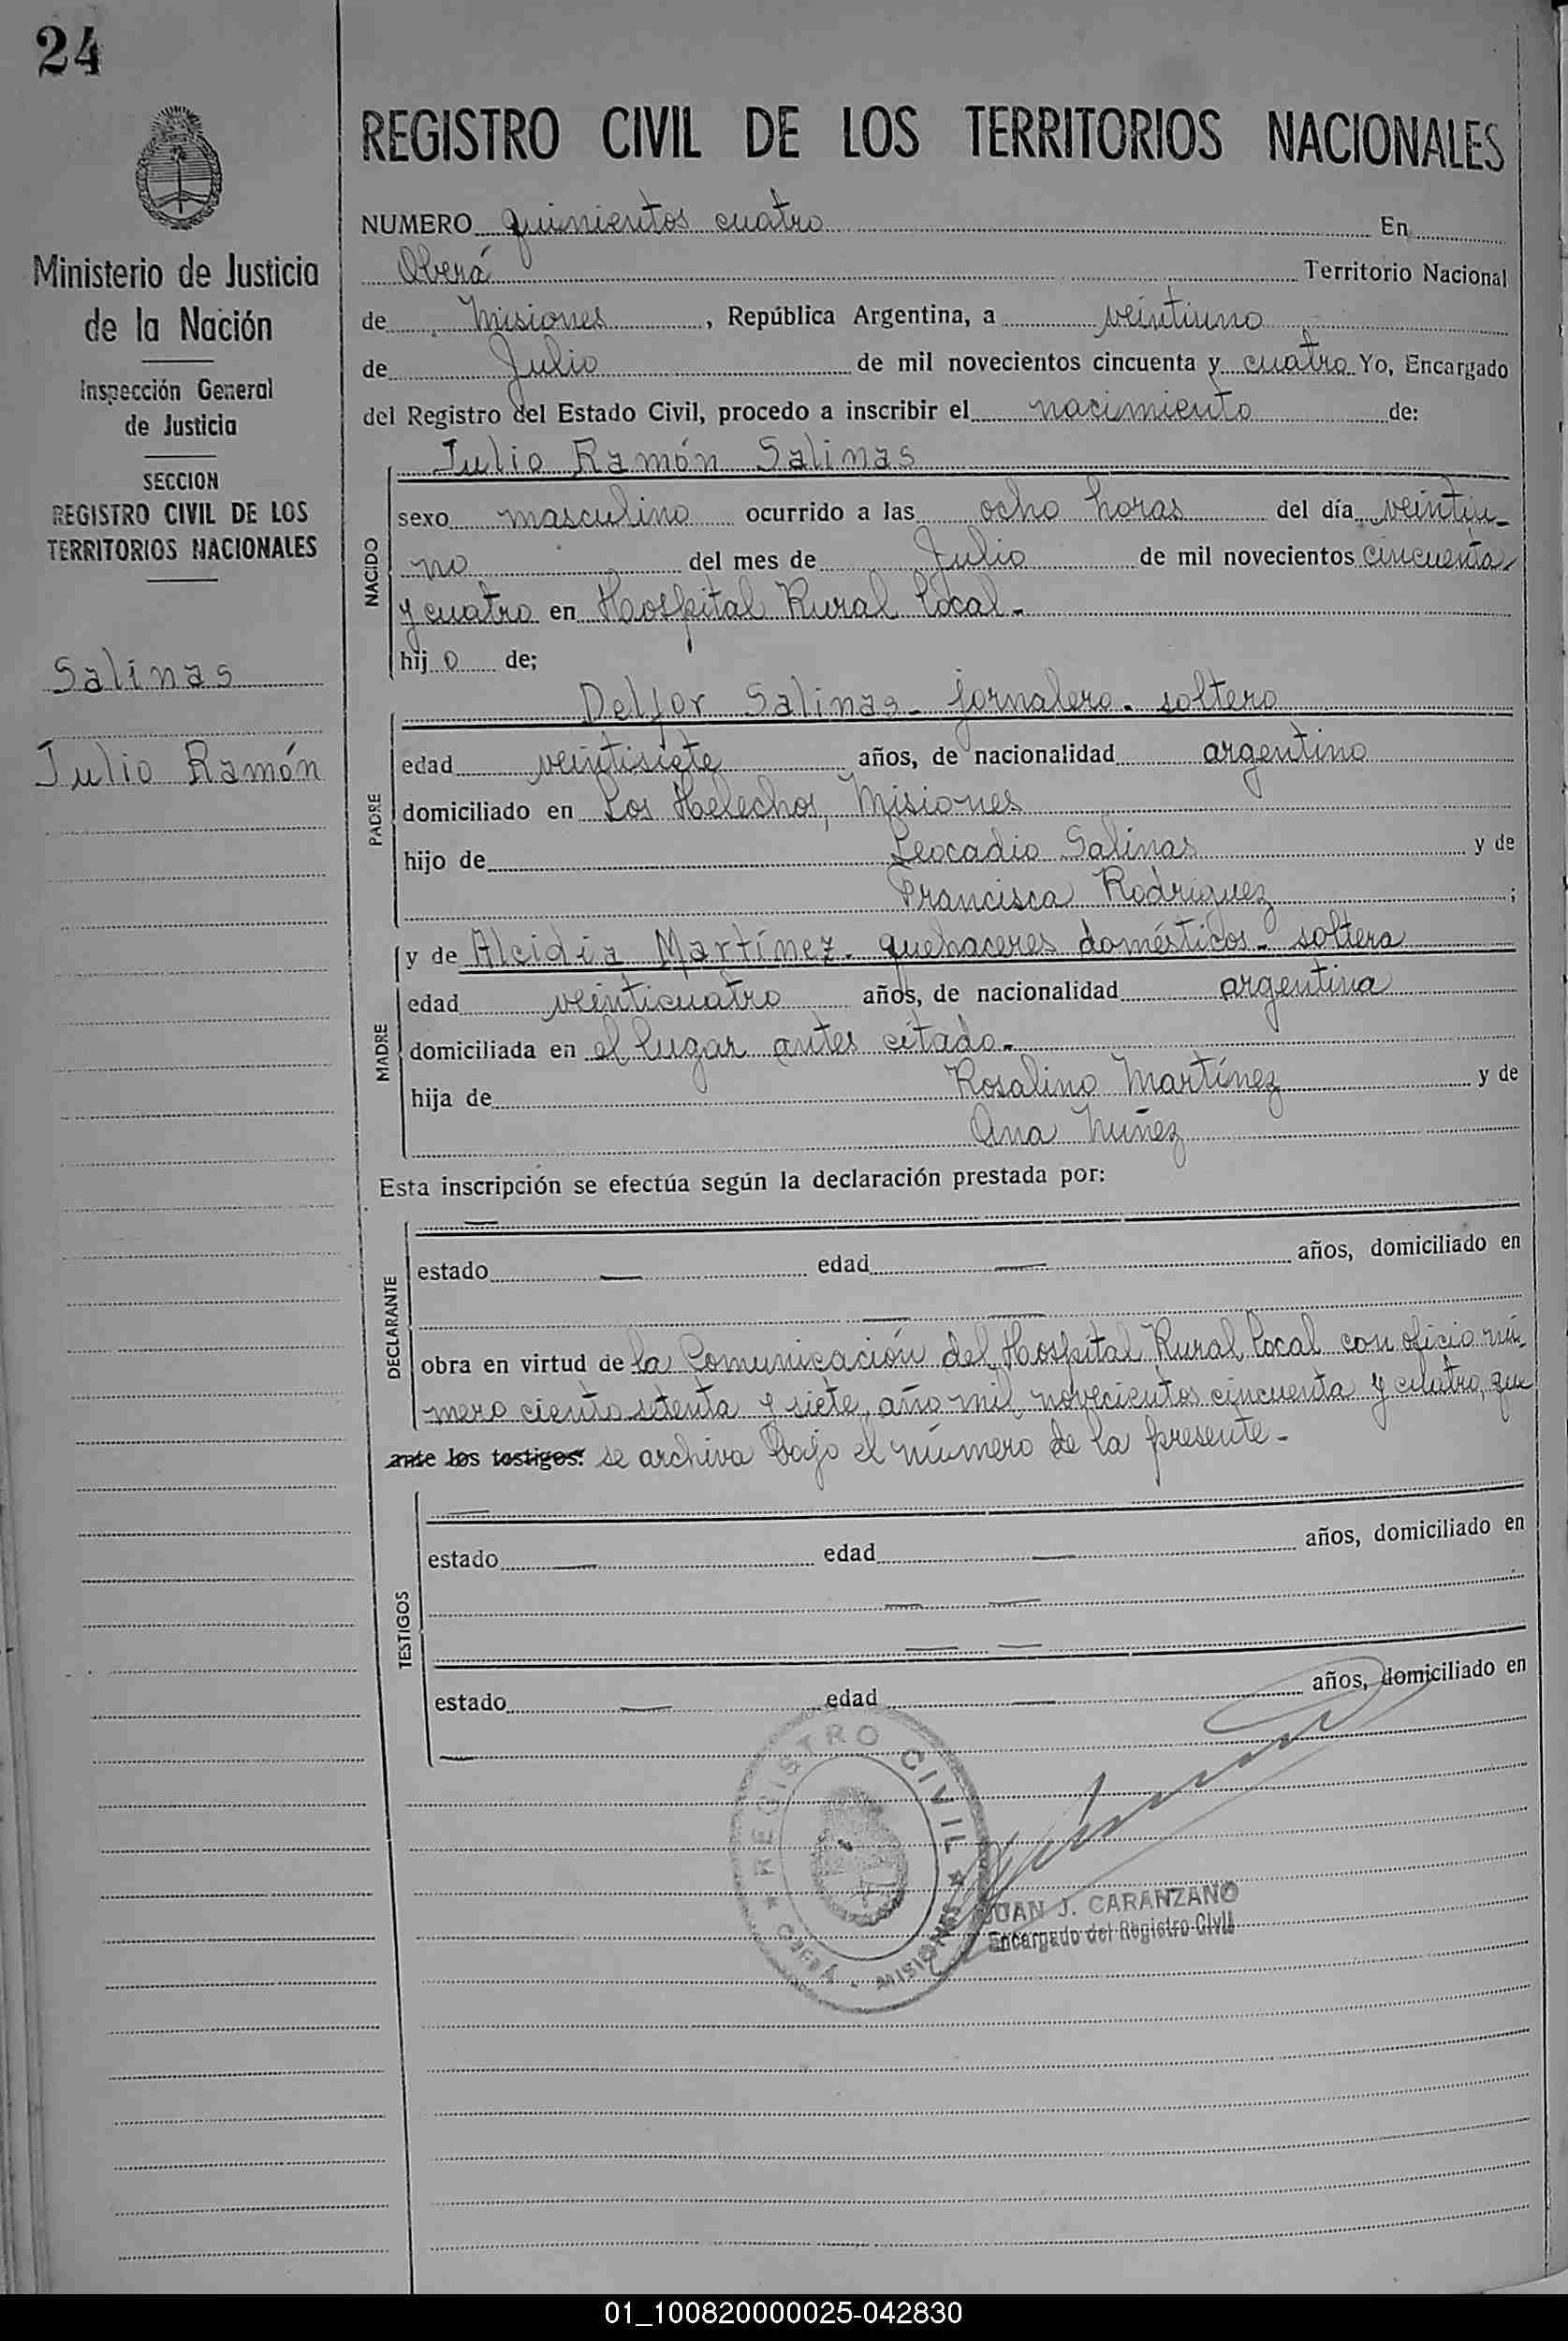 24
Ministerio de Justicia
de la Nación
Inspección General
de Justicia
SECCION
REGISTRO CIVIL DE LOS
TERRITORIOS NACIONALES
Salinas
Julio Ramón
REGISTRO CIVIL DE LOS TERRITORIOS NACIONALES
NUMERO quinientos cuatro En
Oberá Territorio Nacional
de Misiones, República Argentina, a veintiuno
de Julio de mil novecientos cincuenta y cuatro Yo, Encargado
del Registro del Estado Civil, procedo a inscribir el nacimiento de:
NACIDO
Julio Ramón Salinas
sexo masculino ocurrido a las ocho horas del día veintiu-
no del mes de Julio de mil novecientos cincuenta
y cuatro en Hospital Rural Local.-
hijo de;
PADRE
Delfor Salinas- jornalero- soltero
edad veintisiete años, de nacionalidad argentino
domiciliado en Los Helechos, Misiones
hijo de Leocadio Salinas y de
Francisca Rodriguez;
MADRE
y de Alcidia Martínez- quehaceres domésticos- soltera
edad veinticuatro años, de nacionalidad argentina
domiciliada en el lugar antes citado.-
hija de Rosalino Martínez y de
Ana Nuñez
Esta inscripción se efectúa según la declaración prestada por:
DECLARANTE
—
estado — edad — años, domiciliado en
— —
obra en virtud de la Comunicación del Hospital Rural Local con oficio nú-
mero ciento setenta y siete, año mil novecientos cincuenta y cuatro, que
ante los testigos: se archiva bajo el número de la presente.-
TESTIGOS
—
estado — edad — años, domiciliado en
— —
— —
estado — edad — años, domiciliado en
—
REGISTRO CIVIL
OBERÁ - MISIONES
JUAN J. CARANZANO
Encargado del Registro Civil
01_100820000025-042830